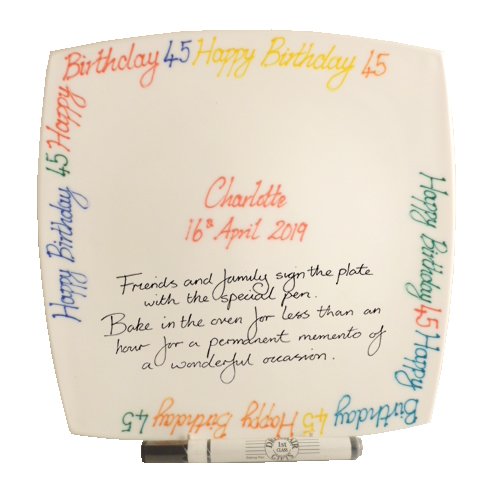 Happy Birthday 45 Happy Birthday 45
Happy Birthday 45
Happy Birthday 45 Happy
Birthday 45 Happy Birthday 45
Charlotte
16th April 2019
Friends and family sign the plate
with the special pen.
Bake in the oven for less than an
hour for a permanent memento of
a wonderful occasion.
1st
CLASS